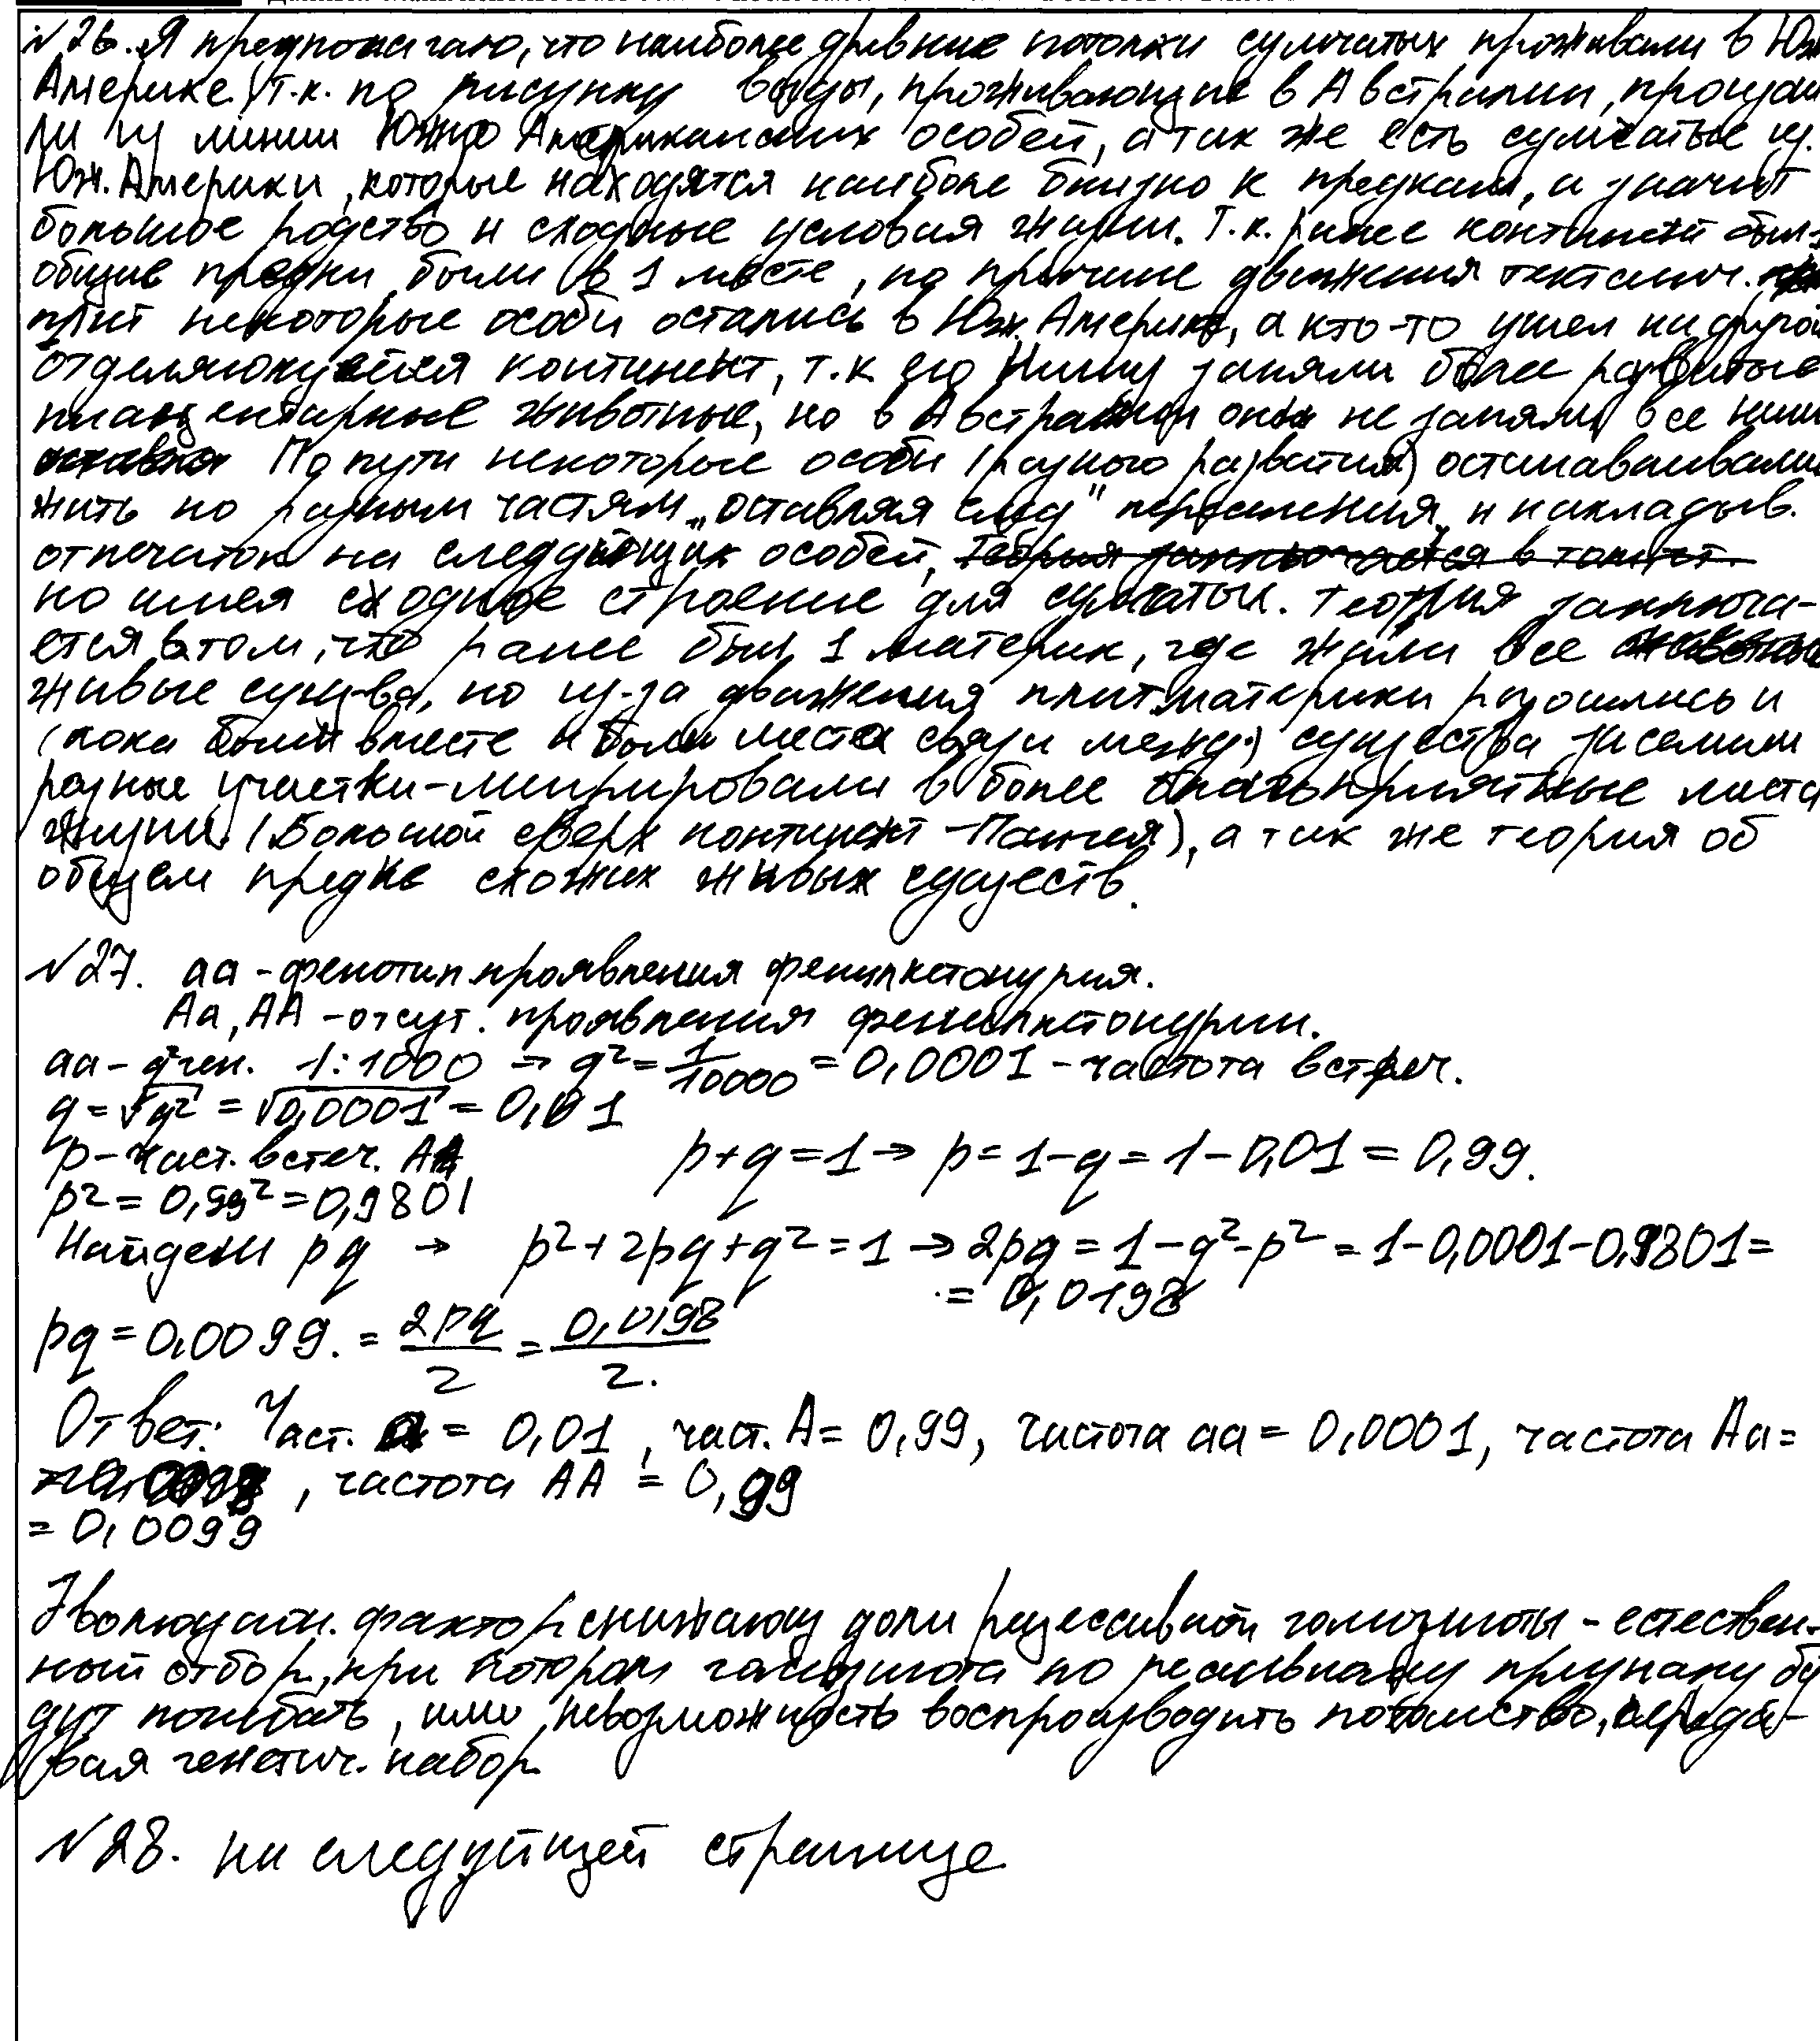 №26. Я предполагаю, что наиболее древние потомки сумчатых проживали в Юж
Америке. Т.к. по рисунку виды, проживающие в Австралии, произош
ли из линии Южно Американских особей, а так же есть сумчатые из.
Юж. Америки, которые находятся наиболе близко к предкам, а значит
большое родство и сходные условия жизни. Т.к. ранее континент был 1
общие предки были в 1 месте, по причине движения тектанич.
плит некоторые особи остались в Юж. Америке, а кто-то ушел на другой
отделяющийся континент, т.к его нишу заняли более развитые
плацентарные животные, но в Австралии они не заняли все ниши
По пути некоторые особи (разного развития) останавливали
жить по разным частям „оставляя след" и накладыв.
отпечаток на следующих особей, Теория заключается в том, чт.
но имея сходное строение для сумчатых. Теория заключа-
ется в том, что ранее был 1 материк, где жили все
живые сущ-ва, но из-за движения плит материки разошлись и
(пока были вместе и были места связи между) существа заселили
разные участки-мигрировали в более благоприятные места
жизни. (Большой сверх континент -Пангея), а так же теория об
общем предке схожих живых существ.
№27. аа - фенотип проявления фенилкетонурия.
Аа, АА - отсут. проявления фенилкетонурии.
аа - фен. 1:1000 → q² = 1/10000 = 0,0001 - частота встреч.
q = √q² = √0,0001 = 0,01
p - част. встеч. АА p+q=1 → p = 1-q = 1-0,01 = 0,99.
p² = 0,99² = 0,9801
Найдем pq → p²+2pq+q²=1 → 2pq = 1-q²-p² = 1-0,0001-0,9801=
= 0,0198
pq = 0,0099. = 2pq/2 = 0,0198/2.
Ответ: Част. а = 0,01, част. А = 0,99, частота аа = 0,0001, частота Аа =
, частота АА = 0,99
= 0,0099
Эволюцион. фактор снижающ доли рецессивной гомозиготы - естествен-
ный отбор, при котором гомозигота по рецсивному признаку бу
дут погибать, или невозможность воспроизводить потомство, переда-
вая генетич. набор.
№28. на следующей странице